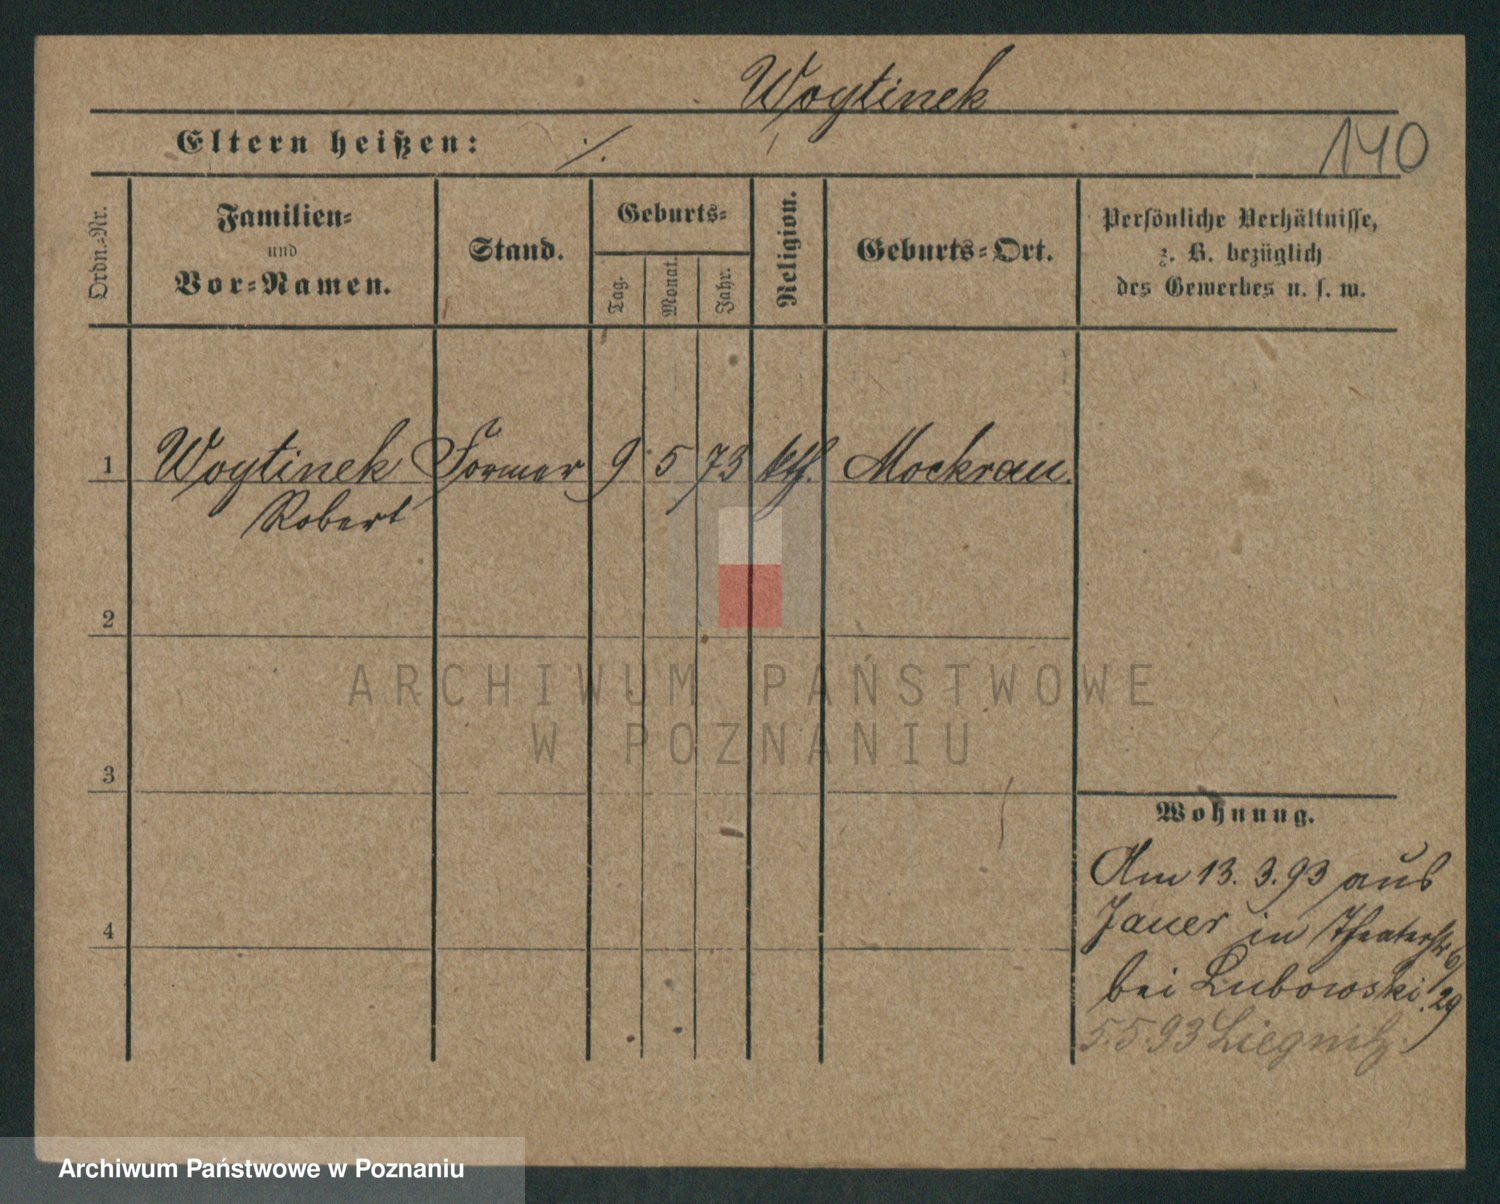 Woytinek
Eltern heißen: ./.
140
Ordn.-Nr.
Familien-
und
Vor-Namen.
Stand.
Geburts-
Tag.
Monat.
Jahr.
Religion.
Geburts-Ort.
Persönliche Verhältnisse,
z. B. bezüglich
des Gewerbes u. s. w.
1 Woytinek Former 9 5 73 kth. Mockrau.
Robert
2
ARCHIWUM PAŃSTWOWE
W POZNANIU
3
Wohnung.
Am 13.3.93 aus
Jauer in Theaterstr 6
bei Lubowski. /29
5.5.93 Liegnitz.
4
Archiwum Państwowe w Poznaniu